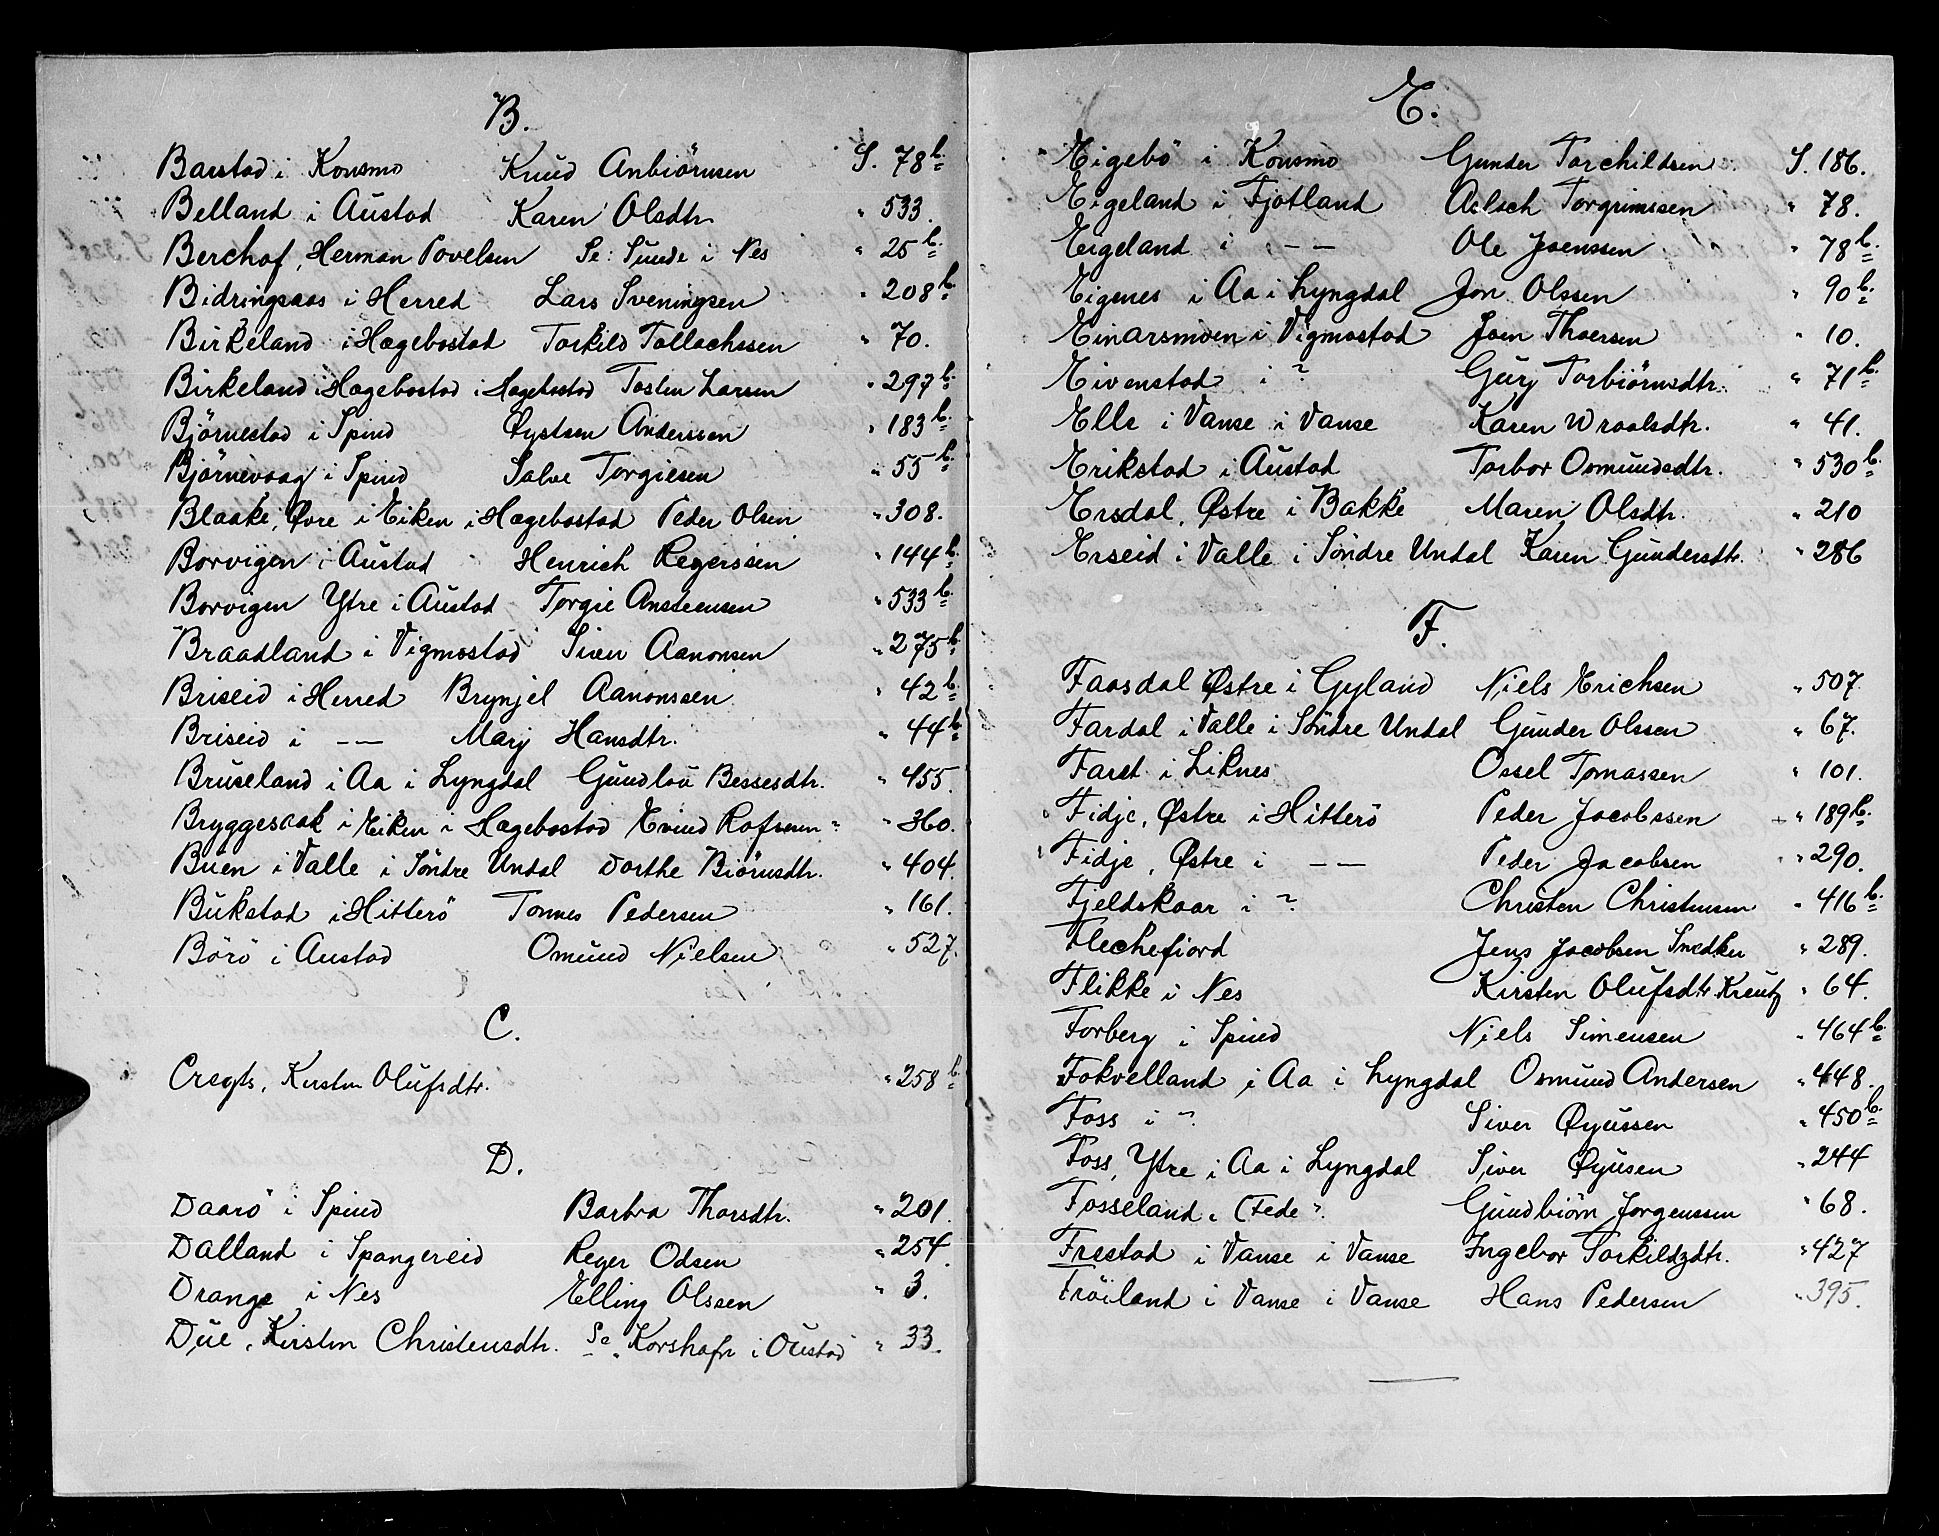 B.
Barstad i Konsmo Knud Anbiörnsen S. 78b.
Belland i Austad Karen Olsdtr. " 533.
Berchof, Herman Povelsen Se: Sunde i Nes " 25b.
Bidringsaas i Herred Lars Sveningsen " 208b.
Birkeland i Hægebostad Torkild Tollachssen " 70.
Birkeland i Hægebostad i Hægebostad Tosten Larsen " 297b.
Björnestad i Spind Øystsen Anderssen " 183b.
Björnevaag i Spind Salve Torgiesen " 55b.
Blaake, Øvre i Eiken i Hægebostad Peder Olsen " 308.
Borvigen i Austad Henrich Regerssen " 144b.
Borvigen Ytre i Austad Torgie Ansteensen " 533b.
Braadland i Vigmostad Siver Aanonsen " 275b.
Briseid i Herred Brynjel Aanonssen " 42b.
Briseid i — — Marj Hansdtr. " 44b.
Bruseland i Aa i Lyngdal Gundlou Bessesdtr. " 455.
Bryggesaak i Eiken i Hægebostad Evind Rafnsen " 360.
Buen i Valle i Söndre Undal Dorthe Biörnsdtr. " 404.
Bukstad i Hitterö Tonnes Pedersen " 161.
Börö i Austad Omund Nielsen " 527.
C.
Cregts, Kirsten Olufsdtr. " 258b.
D.
Daarö i Spind Barbra Thorsdtr. " 201.
Dalland i Spangereid Reger Odsen " 254.
Drange i Nes Elling Olssen " 3.
Due, Kirsten Christensdtr. Se " Korshafn i Oustad " 33.
E.
Eigebö i Konsmo Gunder Torchildsen S. 186.
Eigeland i Fjotland Aelsch Torgrimssen " 78.
Eigeland i — — Ole Joenssen " 78b.
Eigenes i Aa i Lyngdal Jon Olssen " 90b.
Einarsmoen i Vigmostad Joen Thoersen " 10.
Eivenstad i ? Gurj Torbiörnsdtr. " 71b.
Elle i Vanse i Vanse Karen Wraalsdtr. " 41.
Erikstad i Austad Torbor Osmundsdtr. " 530b.
Ersdal, Østre i Bakke Maren Olsdtr. " 210
Erseid i Valle i Söndre Undal Karen Gundersdtr. " 286
F.
Faasdal Østre i Gyland Niels Erichsen " 507
Fardal i Valle i Söndre Undal Gunder Olssen " 67.
Faret i Liknes Ossel Tomassen " 101.
Fidje, Østre i Hitterö Peder Jacobssen " 189b.
Fidje, Østre i — — Peder Jacobsen " 290.
Fjeldskaar i ? Christen Christensen " 416b.
Flechefiord Jens Jacobsen Snedker " 289.
Flikke i Nes Kirsten Olufsdtr. Kreutz " 64.
Forberg i Spind Niels Simensen " 464b.
Fokvelland i Aa i Lyngdal Osmund Andersen " 448.
Foss i ? Siver Øyussen " 450b.
Foss, Ytre i Aa i Lyngdal Siver Øyusen " 244
Fosseland i (Fede?) Gundbiörn Jorgenssen " 68.
Frestad i Vanse i Vanse Ingebor Torkildzdtr. " 427
Fröiland i Vanse i Vanse Hans Pedersen " 395.